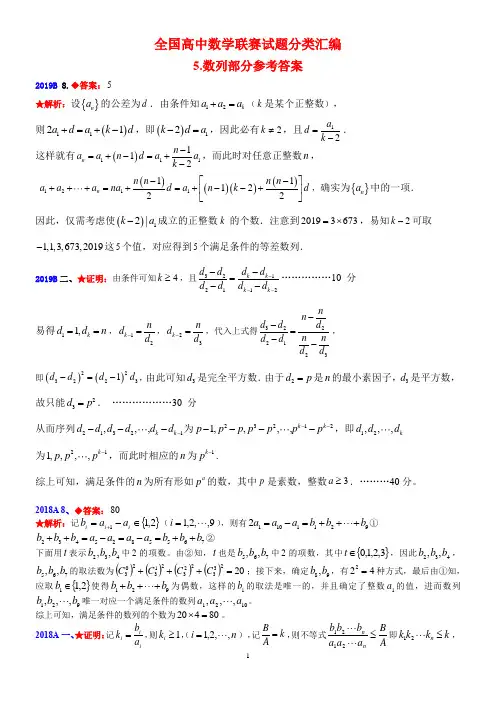 全国高中数学联赛试题分类汇编
5.数列部分参考答案
2019B 8.◆答案：5
★解析：设{a_n}的公差为d．由条件知a_1+a_2=a_k（k是某个正整数），
则2a_1+d=a_1+(k-1)d，即(k-2)d=a_1，因此必有k≠2，且d=\frac{a_1}{k-2}．
这样就有a_n=a_1+(n-1)d=a_1+\frac{n-1}{k-2}a_1，而此时对任意正整数n，
a_1+a_2+⋯+a_n=na_1+\frac{n(n-1)}{2}d=a_1+[(n-1)(k-2)+\frac{n(n-1)}{2}]d，确实为{a_n}中的一项．
因此，仅需考虑使(k-2)|a_1成立的正整数k 的个数．注意到2019=3×673，易知k-2可取
-1,1,3,673,2019这5个值，对应得到5个满足条件的等差数列．
2019B二、★证明：由条件可知k≥4，且\frac{d_3-d_2}{d_2-d_1}=\frac{d_k-d_{k-1}}{d_{k-1}-d_{k-2}}……………10 分
易得d_1=1,d_k=n，d_{k-1}=\frac{n}{d_2}，d_{k-2}=\frac{n}{d_3}，代入上式得\frac{d_3-d_2}{d_2-d_1}=\frac{n-\frac{n}{d_2}}{\frac{n}{d_2}-\frac{n}{d_3}}，
即(d_3-d_2)^2=(d_2-1)^2d_3，由此可知d_3是完全平方数．由于d_2=p是n的最小素因子，d_3是平方数，
故只能d_3=p^2． ………………30 分
从而序列d_2-d_1,d_3-d_2,⋯,d_k-d_{k-1}为p-1,p^2-p,p^3-p^2,⋯,p^{k-1}-p^{k-2}，即d_1,d_2,⋯,d_k
为1,p,p^2,⋯,p^{k-1}，而此时相应的n为p^{k-1}．
综上可知，满足条件的n为所有形如p^a的数，其中p是素数，整数a≥3．………40分。
2018A 8、◆答案：80
★解析：记b_i=a_{i+1}-a_i∈{1,2}（i=1,2,⋯,9），则有2a_1=a_{10}-a_1=b_1+b_2+⋯+b_9①
b_2+b_3+b_4=a_5-a_2=a_8-a_5=b_5+b_6+b_7②
下面用t表示b_2,b_3,b_4中2的项数。由②知，t也是b_5,b_6,b_7中2的项数，其中t∈{0,1,2,3}，因此b_2,b_3,b_4，
b_5,b_6,b_7的取法数为(C_3^0)^2+(C_3^1)^2+(C_3^2)^2+(C_3^3)^2=20；接下来，确定b_8,b_9，有2^2=4种方式，最后由①知，
应取b_1∈{1,2}使得b_1+b_2+⋯+b_9为偶数，这样的b_1的取法是唯一的，并且确定了整数a_1的值，进而数列
b_1,b_2,⋯,b_9唯一对应一个满足条件的数列a_1,a_2,⋯,a_{10}。
综上可知，满足条件的数列的个数为20×4=80。
2018A一、★证明：记k_i=\frac{b_i}{a_i}，则k_i≥1，（i=1,2,⋯,n），记\frac{B}{A}=k，则不等式\frac{b_1b_2⋯b_n}{a_1a_2⋯a_n}≤\frac{B}{A}即k_1k_2⋯k_n≤k，
1